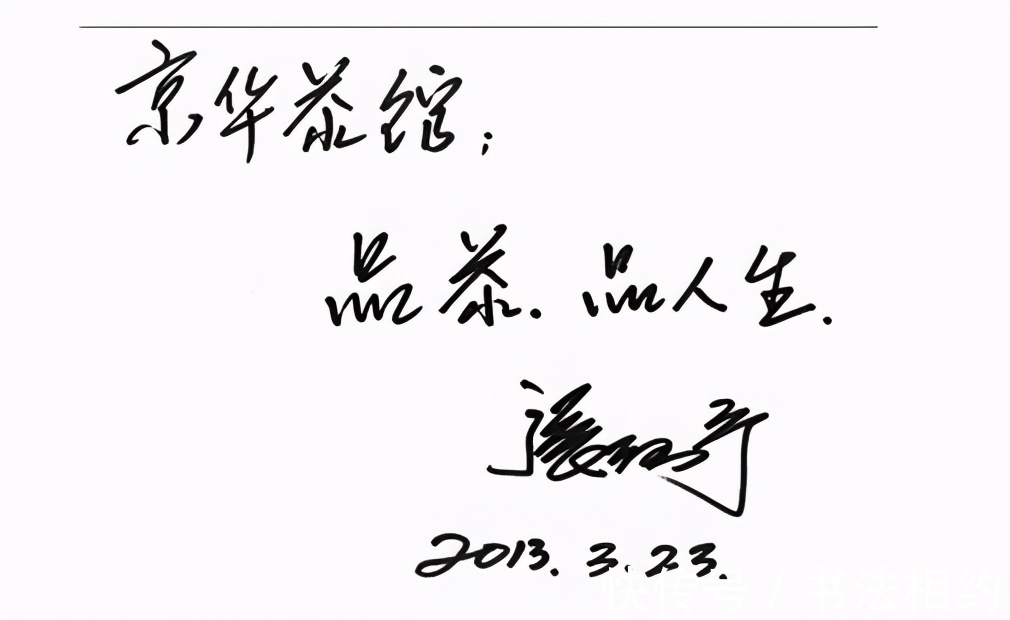 京华茶馆：
品茶.品人生.
張
2013.3.23.
快传号/书法相约